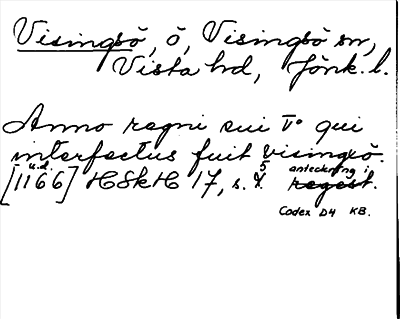 Visingsö, ö, Visingsö sn,
Vista hd, Jönk. l.
Anno regni sui V° qui
interfectus fuit visingsö.
u.d. 5 anteckning i
[1166] HSkH 17, s. X regest.
Codex D4 KB.